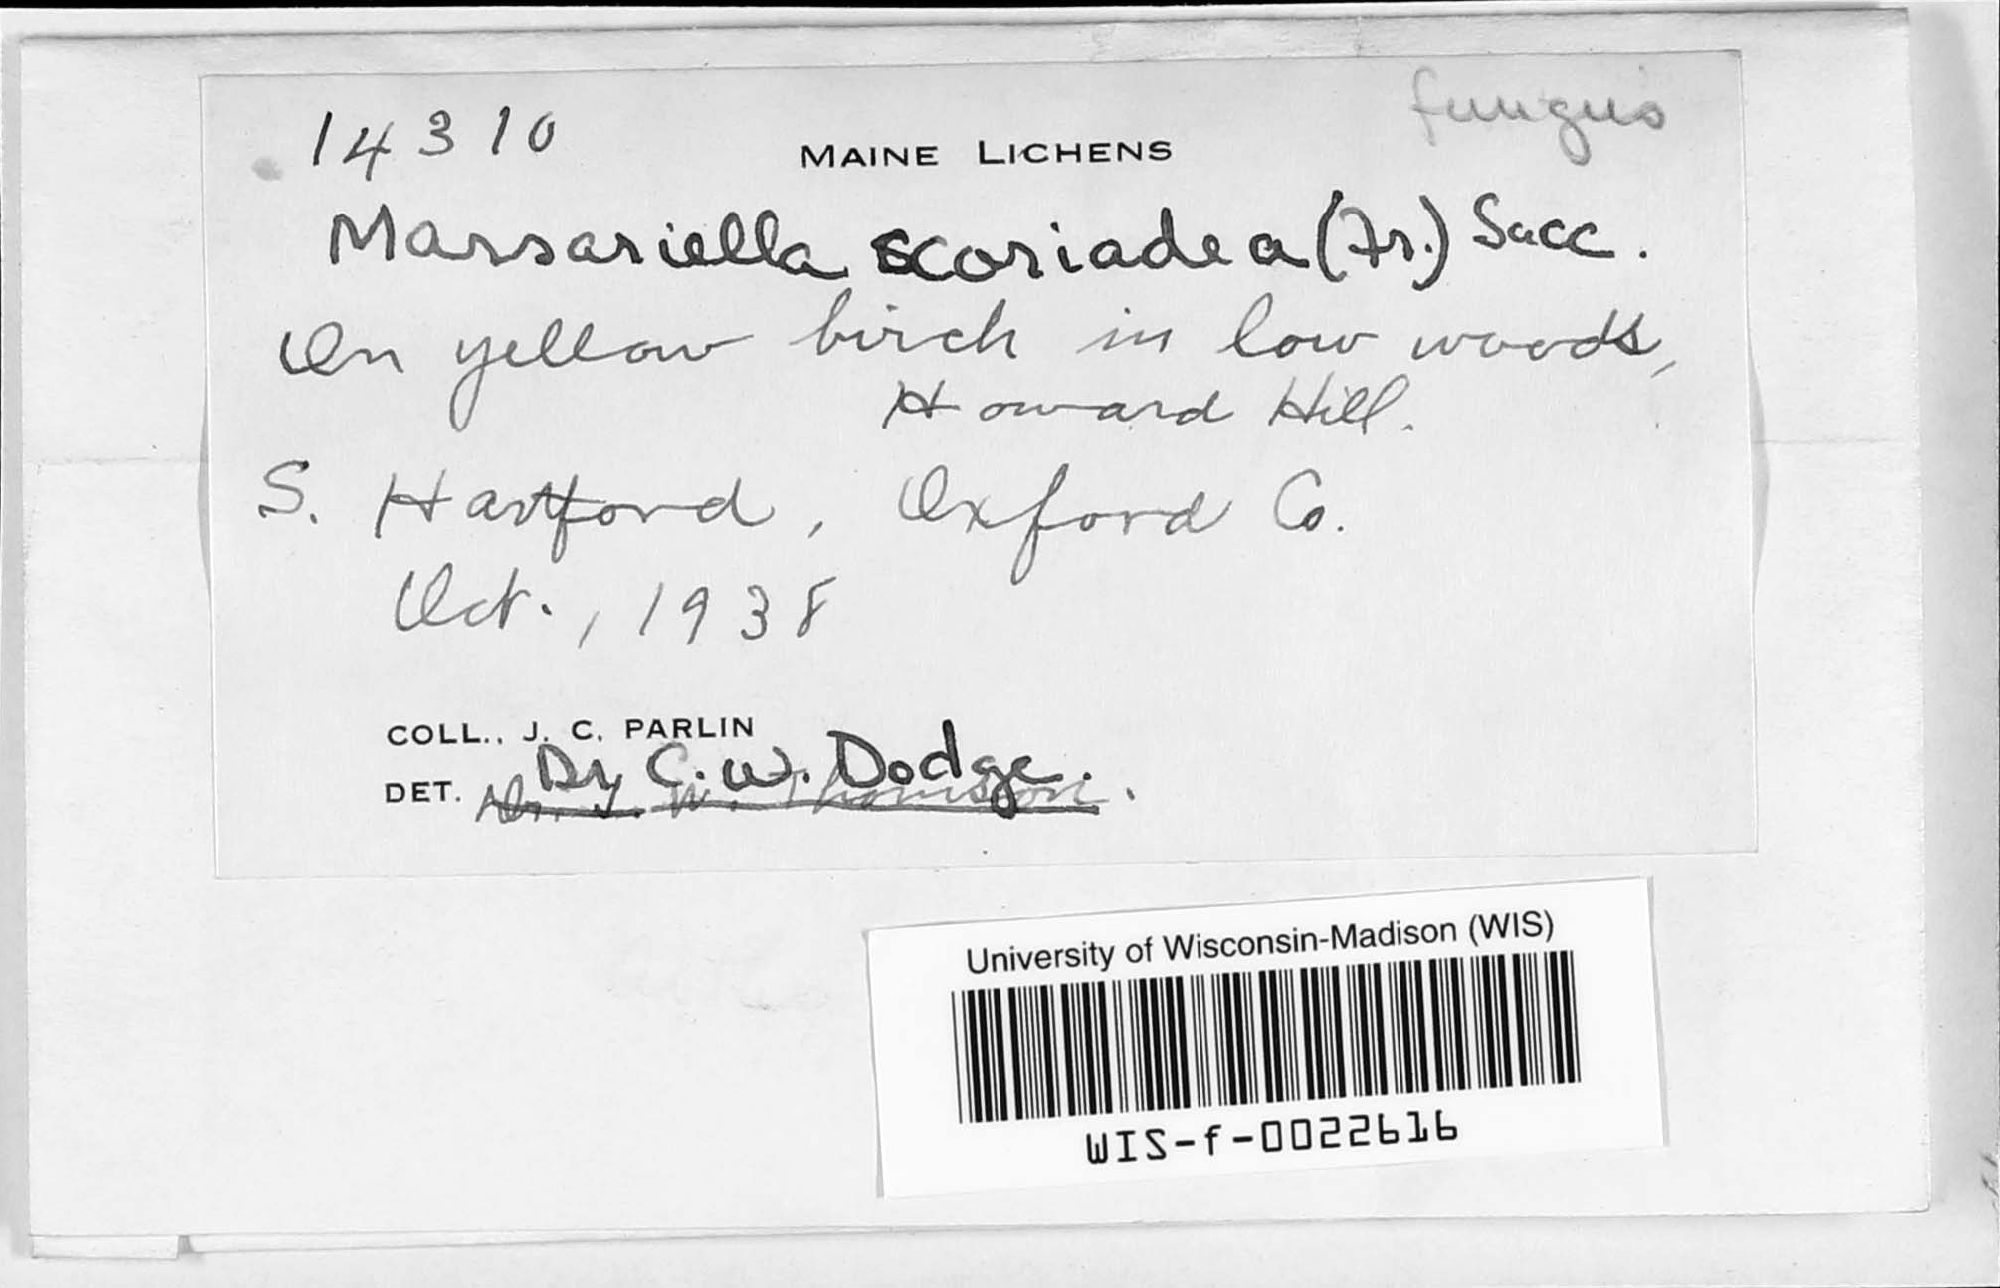 fungus
14310
MAINE LICHENS
Massariella scoriadea (Fr.) Sacc.
On yellow birch in low woods,
Howard Hill.
S. Hartford, Oxford Co.
Oct., 1938
COLL., J. C. PARLIN
Dr C. W. Dodge.
DET. Dr. J. W. Thomson.
University of Wisconsin-Madison (WIS)
WIS-f-0022616